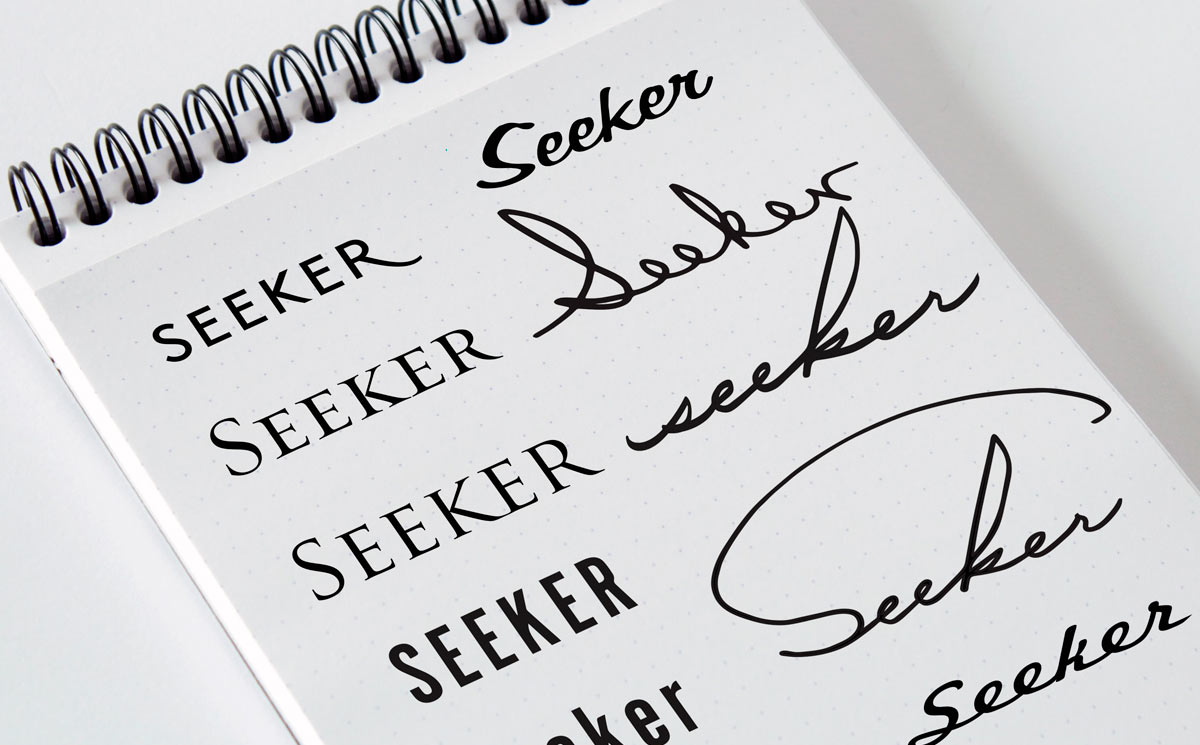 SEEKER
SEEKER
SEEKER
SEEKER
eker
Seeker
Seeker
seeker
Seeker
Seeker